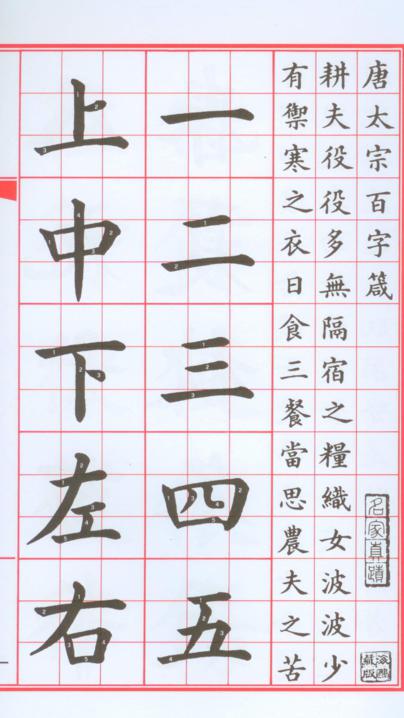 唐太宗百字箴
名家真蹟
耕夫役役多無隔宿之糧織女波波少
有禦寒之衣日食三餐當思農夫之苦
一二三四五
上中下左右